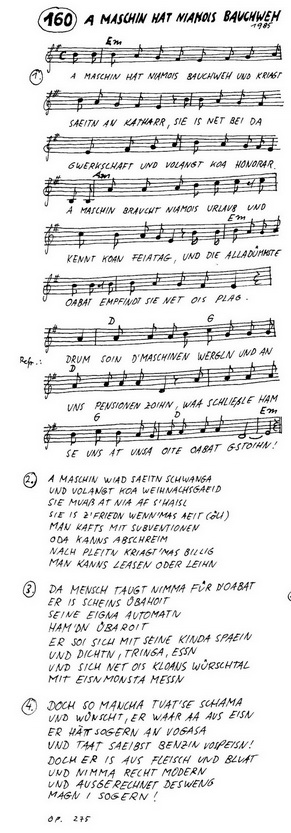 160 A MASCHIN HAT NIAMOIS BAUCHWEH
1985
Em
1. A MASCHIN HAT NIAMOIS BAUCHWEH UND KRIAGT
SAEITN AN KATHARR, SIE IS NET BEI DA
GWERKSCHAFT UND VOLANGT KOA HONORAR.
Am
A MASCHIN BRAUCHT NIAMOIS URLAUB UND
Em
KENNT KOAN FEIATAG, UND DIE ALLADÜMMSTE
OABAT EMPFINDT SIE NET OIS PLAG.
D G
Refr.: DRUM SOIN D'MASCHINEN WERGLN UND AN
D
UNS PENSIONEN ZOIHN, WAA SCHLIEßLE HAM
G D Em
SE UNS AT UNSA OITE OABAT GSTOIHN!
2. A MASCHIN WIAD SAEITN SCHWANGA
UND VOLANGT KOA WEIHNACHSGAEID
SIE MUAß AT NIA AF S'HAISL
SIE IS Z'FRIEDN WENN'MAS AEIT (ÖLI)
MAN KAFTS MIT SUBVENTIONEN
ODA KANNS ABSCHREIM
NACH PLEITN KRIAGT'MAS BILLIG
MAN KANNS LEASEN ODER LEIHN
3. DA MENSCH TAUGT NIMMA FÜR D'OABAT
ER IS SCHEINS ÜBAHOIT
SEINE EIGNA AUTOMATN
HAM'DN ÜBAROIT
ER SOI SICH MIT SEINE KINDA SPAEIN
UND DICHTN, TRINGA, ESSN
UND SICH NET OIS KLOANS WÜRSCHTAL
MIT EISNMONSTA MESSN
4. DOCH SO MANCHA TUAT'SE SCHAMA
UND WÜNSCHT, ER WAAR AA AUS EISN
ER HÄTT SOGERN AN VOGASA
UND TAAT SAEIBST BENZIN VOSPEISN!
DOCH ER IS AUS FLEISCH UND BLUAT
UND NIMMA RECHT MODERN
UND AUSGERECHNET DESWENG
MAGN I SOGERN!
OP. 275